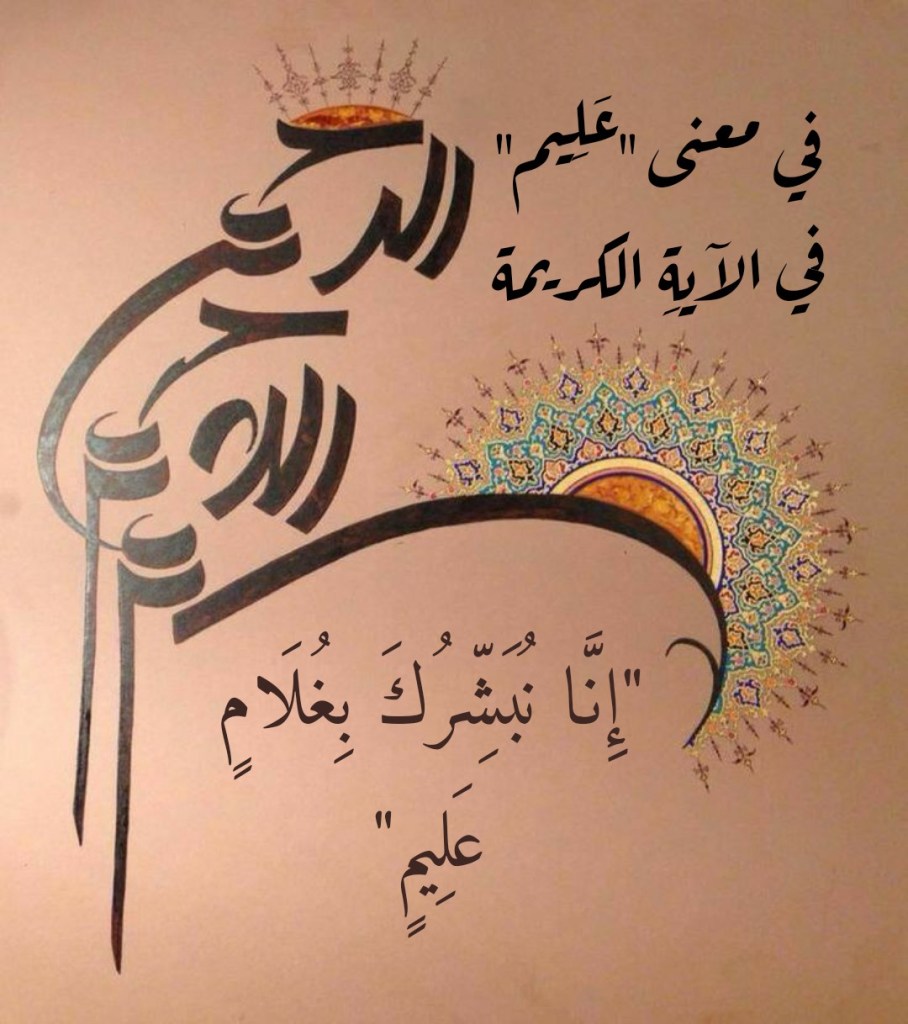 في معنى "عَلِيم"
في الآيةِ الكريمة
بسم الله الرحمن الرحيم
"إِنَّا نُبَشِّرُكَ بِغُلَامٍ
عَلِيمٍ"